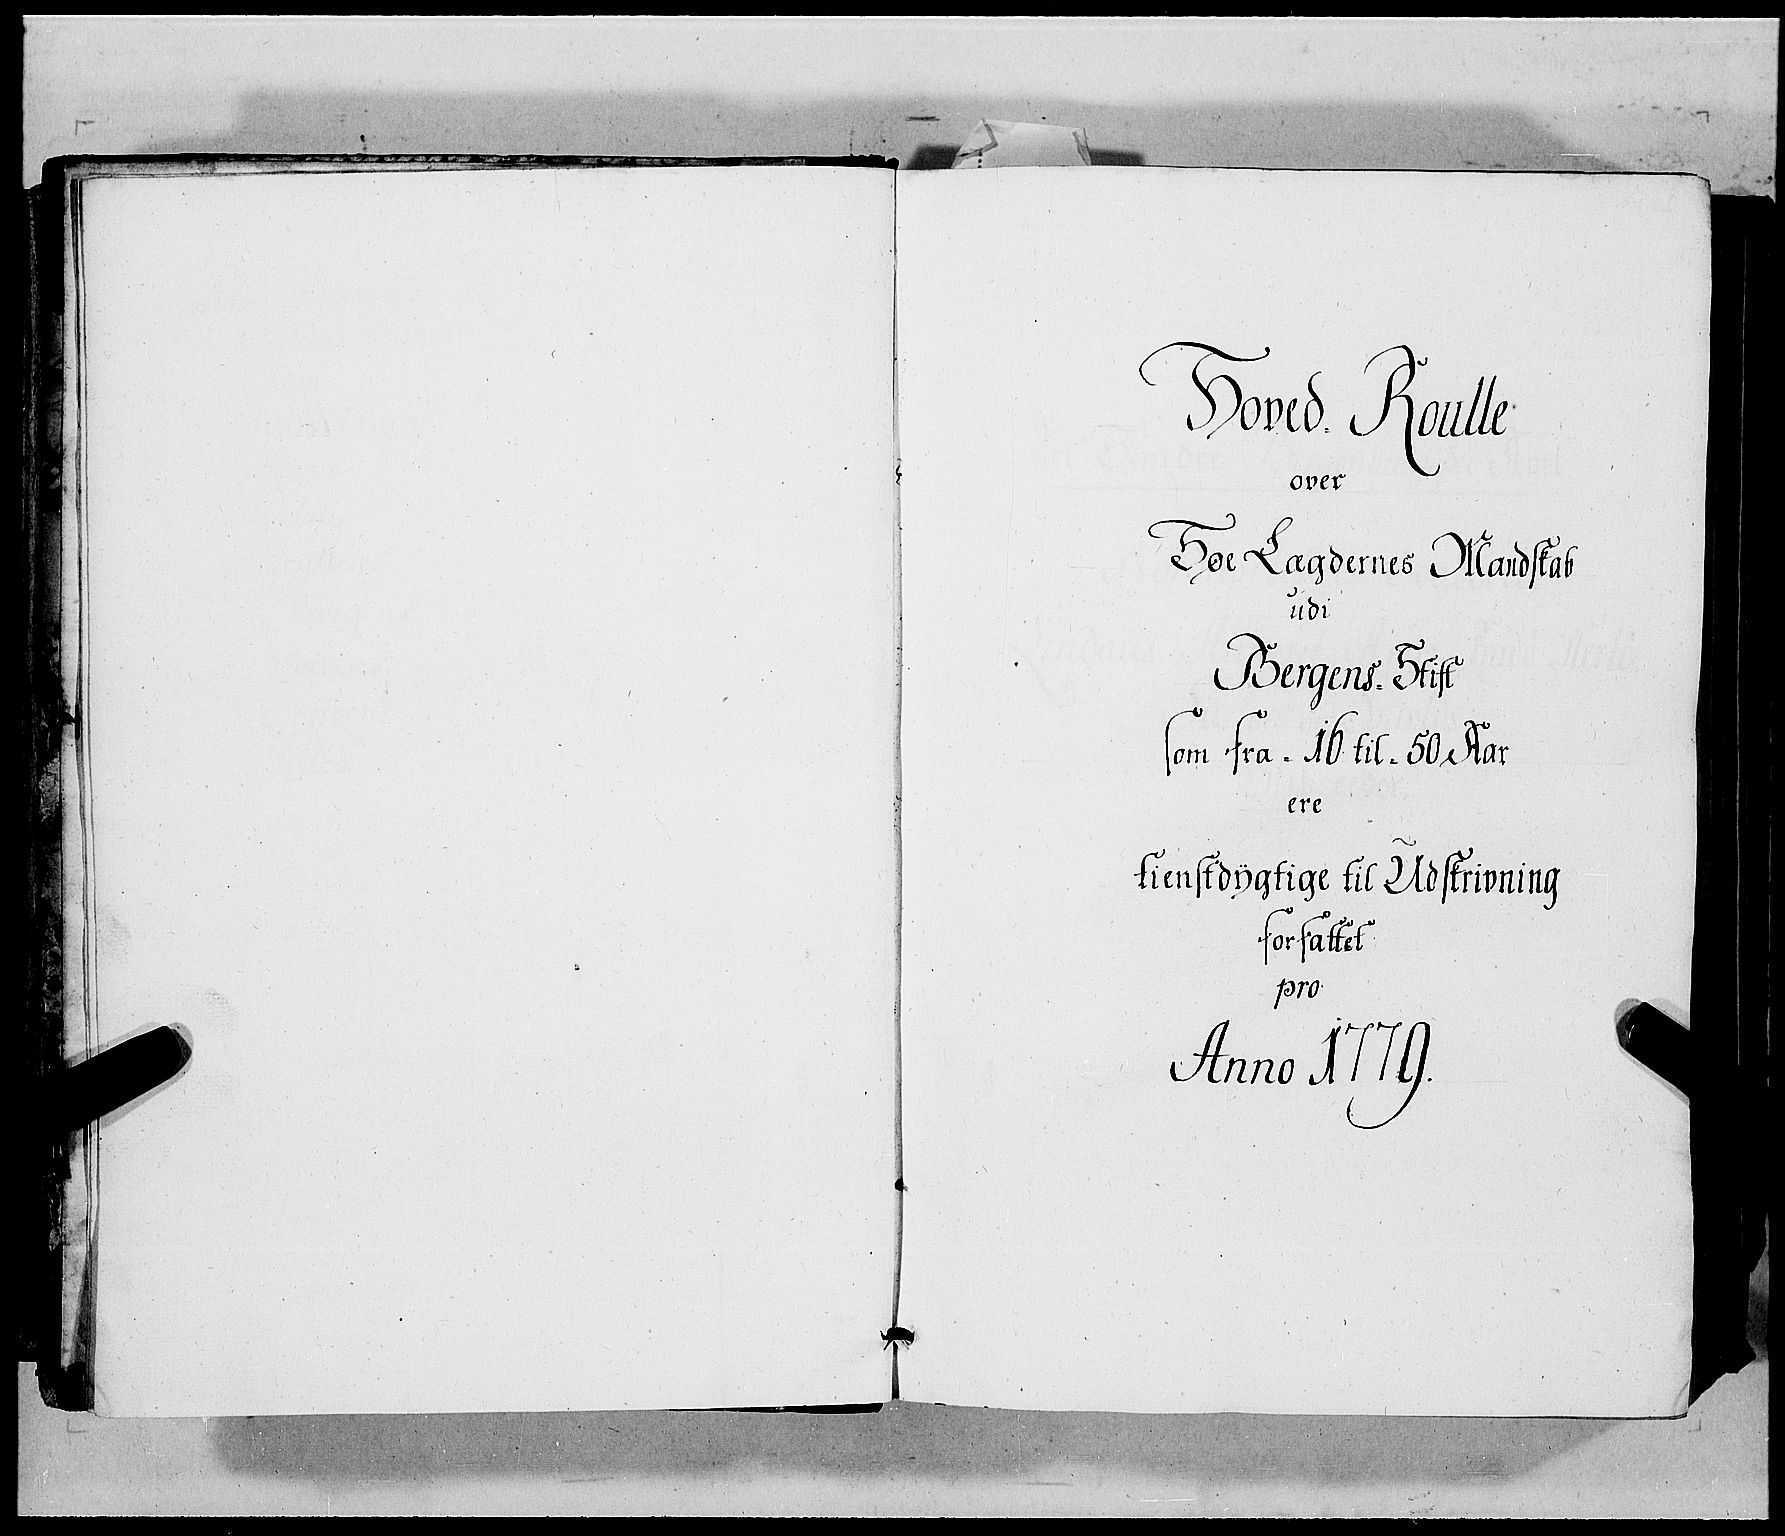 Hoved. Roulle
over
Søe Lægdernes Mandskab
udi
Bergens. Stift
som fra. 16 til. 50 Aar
ere
tienstdÿgtige til Udskrivning
forfattet
pro
Anno 1779.